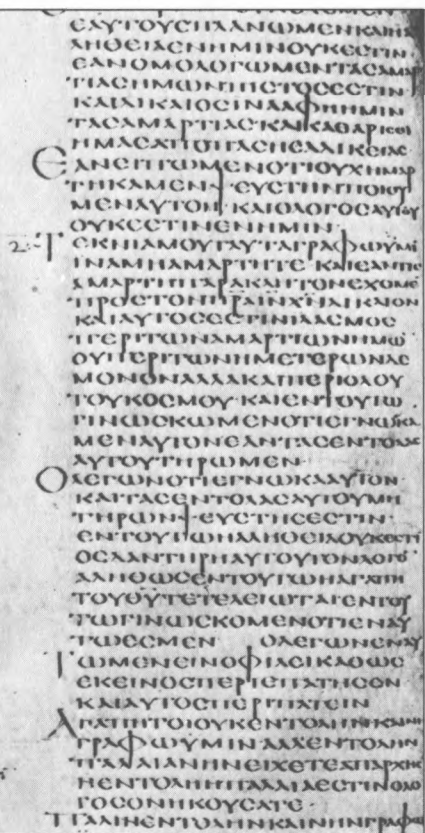 ΕΑΥΤΟΥϹΠΛΑΝΩΜΕΝΚΑΙΗ
ΑΛΗΘΕΙΑΕΝΗΜΙΝΟΥΚΕϹΤΙΝ
ΕΑΝΟΜΟΛΟΓΩΜΕΝΤΑϹΑΜΑΡ
ΤΙΑϹΗΜΩΝΠΙϹΤΟϹΕϹΤΙΝ
ΚΑΙΔΙΚΑΙΟϹΙΝΑΑΦΗΗΜΙΝ
ΤΑϹΑΜΑΡΤΙΑϹΚΑΙΚΑΘΑΡΙϹΕΙ
ΗΜΑϹΑΠΟΠΑϹΗϹΑΔΙΚΕΙΑϹ
ΕΑΝΕΙΠΩΜΕΝΟΤΙΟΥΧΗΜΑΡ
ΤΗΚΑΜΕΝ·ΨΕΥϹΤΗΝΠΟΙΟΥ
ΜΕΝΑΥΤΟΝ·ΚΑΙΟΛΟΓΟϹΑΥΤΟΥ
ΟΥΚΕϹΤΙΝΕΝΗΜΙΝ·
2:- ΤΕΚΝΙΑΜΟΥΤΑΥΤΑΓΡΑΦΩΥΜΙ
ΙΝΑΜΗΑΜΑΡΤΗΤΕ·ΚΑΙΕΑΝΤΙϹ
ΑΜΑΡΤΗΠΑΡΑΚΛΗΤΟΝΕΧΟΜΕ
ΠΡΟϹΤΟΝΠΡΑΙΝΧΝΔΙΚΑΙΟΝ
ΚΑΙΑΥΤΟϹΕϹΤΙΝΙΛΑϹΜΟϹ
ΠΕΡΙΤΩΝΑΜΑΡΤΙΩΝΗΜΩ
ΟΥΠΕΡΙΤΩΝΗΜΕΤΕΡΩΝΔΕ
ΜΟΝΟΝΑΛΛΑΚΑΙΠΕΡΙΟΛΟΥ
ΤΟΥΚΟϹΜΟΥ·ΚΑΙΕΝΤΟΥΤΩ
ΓΙΝΩϹΚΩΜΕΝΟΤΙΕΓΝΩΚΑ
ΜΕΝΑΥΤΟΝΕΑΝΤΑϹΕΝΤΟΛΑϹ
ΑΥΤΟΥΤΗΡΩΜΕΝ·
ΟΛΕΓΩΝΟΤΙΕΓΝΩΚΑΑΥΤΟΝ
ΚΑΙΤΑϹΕΝΤΟΛΑϹΑΥΤΟΥΜΗ
ΤΗΡΩΝ·ΨΕΥϹΤΗϹΕϹΤΙΝ·
ΕΝΤΟΥΤΩΗΑΛΗΘΕΙΑΟΥΚΕϹΤΙ
ΟϹΔΑΝΤΗΡΗΑΥΤΟΥΤΟΝΛΟΓΟ
ΑΛΗΘΩϹΕΝΤΟΥΤΩΗΑΓΑΠΗ
ΤΟΥΘΥΤΕΤΕΛΕΙΩΤΑΙΕΝΤΟΥ
ΤΩΓΙΝΩϹΚΟΜΕΝΟΤΙΕΝΑΥ
ΤΩΕϹΜΕΝ ΟΛΕΓΩΝΕΝΑΥ
ΤΩΜΕΝΕΙΝΟΦΙΛΕΙΚΑΘΩϹ
ΕΚΕΙΝΟϹΠΕΡΙΕΠΑΤΗϹΕΝ
ΚΑΙΑΥΤΟϹΠΕΡΙΠΑΤΕΙΝ
ΑΓΑΠΗΤΟΙΟΥΚΕΝΤΟΛΗΝΚΑΙΝΗ
ΓΡΑΦΩΥΜΙΝ·ΑΛΛΕΝΤΟΛΗΝ
ΠΑΛΑΙΑΝΗΝΕΙΧΕΤΕΑΠΑΡΧΗϹ
ΗΕΝΤΟΛΗΗΠΑΛΑΙΑΕϹΤΙΝΟΛΟ
ΓΟϹΟΝΗΚΟΥϹΑΤΕ·
ΠΑΛΙΝΕΝΤΟΛΗΝΚΑΙΝΗΝΓΡΑΦΩ